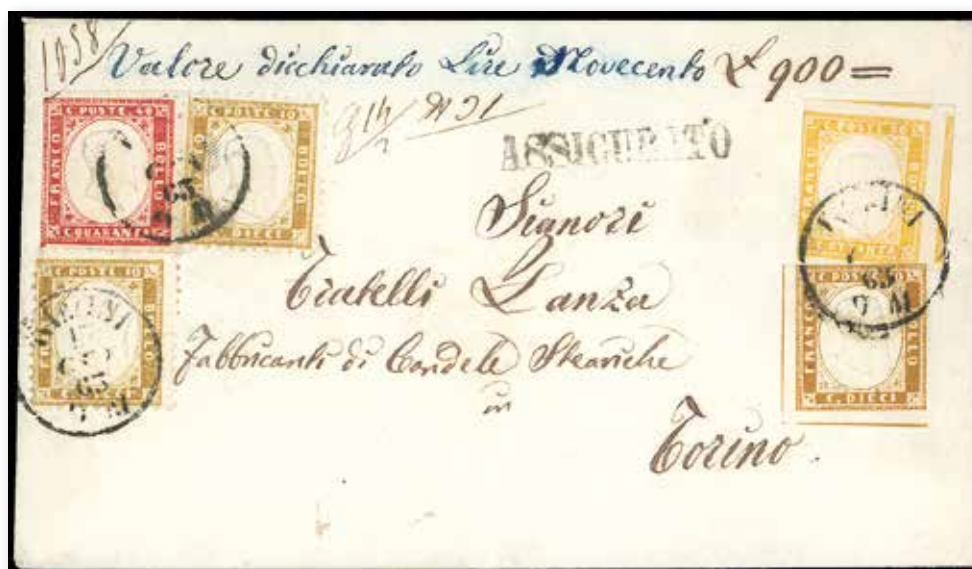 1058/ Valore dicchiarato Lire Novecento £ 900=
ASSICURATO
Signori
Fratelli Lanza
Fabbricanti di Candele Steariche
in
Torino.
C. POSTE 40
FRANCO
BOLLO
C. QUARANTA
C. POSTE 10
BOLLO
C. DIECI
C. POSTE 10
FRANCO
BOLLO
63
C. OTTANTA
63
C. POSTE 10
FRANCO
BOLLO
C. DIECI